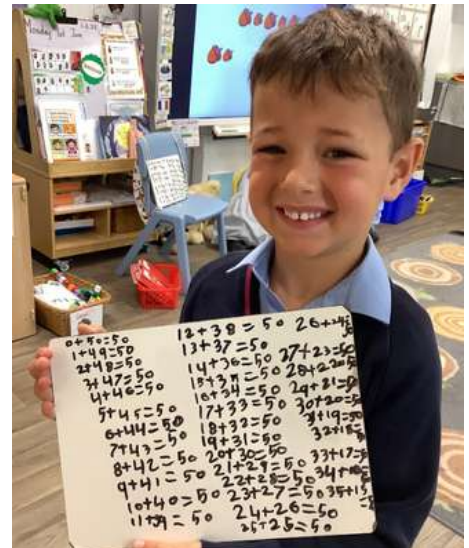 Monday 1st June
0+50=50
1+49=50
2+48=50
3+47=50
4+46=50
5+45=50
6+44=50
7+43=50
8+42=50
9+41=50
10+40=50
11+39=50
12+38=50
13+37=50
14+36=50
15+35=50
16+34=50
17+33=50
18+32=50
19+31=50
20+30=50
21+29=50
22+28=50
23+27=50
24+26=50
25+25=50
26+24=50
27+23=50
28+22=50
29+21=50
30+20=50
31+19=50
32+18=
33+17=50
34+16=
35+15